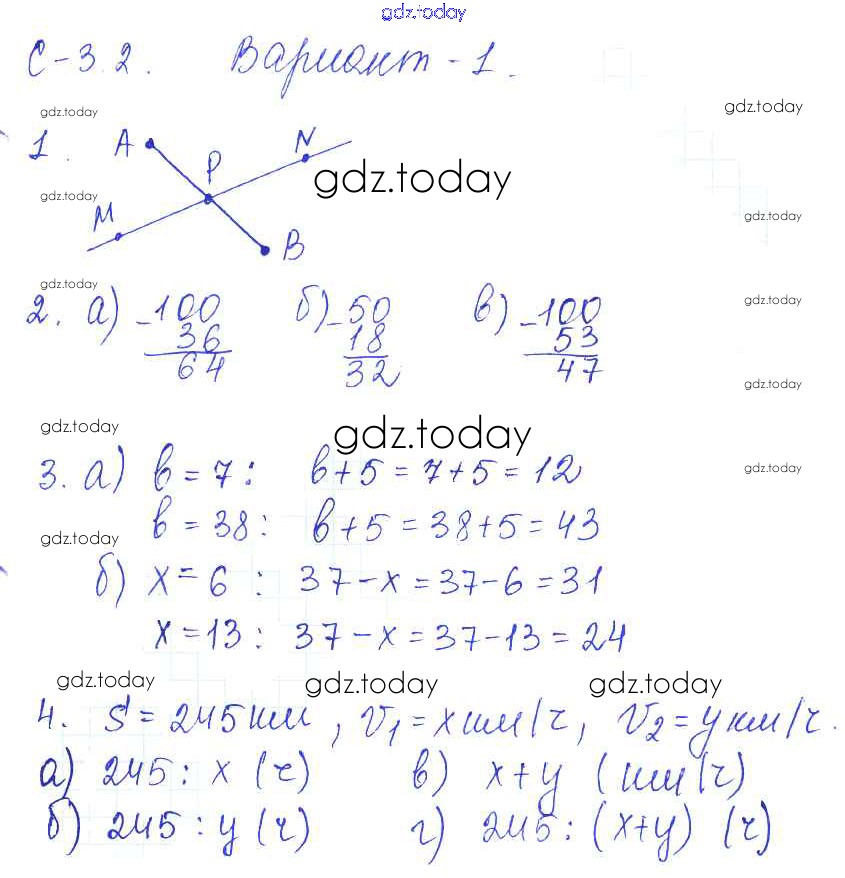 gdz.today
С-3.2. Вариант-1.
gdz.today
gdz.today
1. A P N
gdz.today
gdz.today
M B
gdz.today
gdz.today
2. а) -100 б) -50 в) -100
36 18 53
64 32 47
gdz.today
gdz.today
gdz.today
gdz.today
3. а) b = 7 : b + 5 = 7 + 5 = 12
b = 38 : b + 5 = 38 + 5 = 43
gdz.today
б) x = 6 : 37 - x = 37 - 6 = 31
x = 13 : 37 - x = 37 - 13 = 24
gdz.today gdz.today gdz.today
4. S = 245 км, V₁ = x км/ч, V₂ = y км/ч.
а) 245 : x (ч) в) x + y (км/ч)
б) 245 : y (ч) г) 245 : (x + y) (ч)